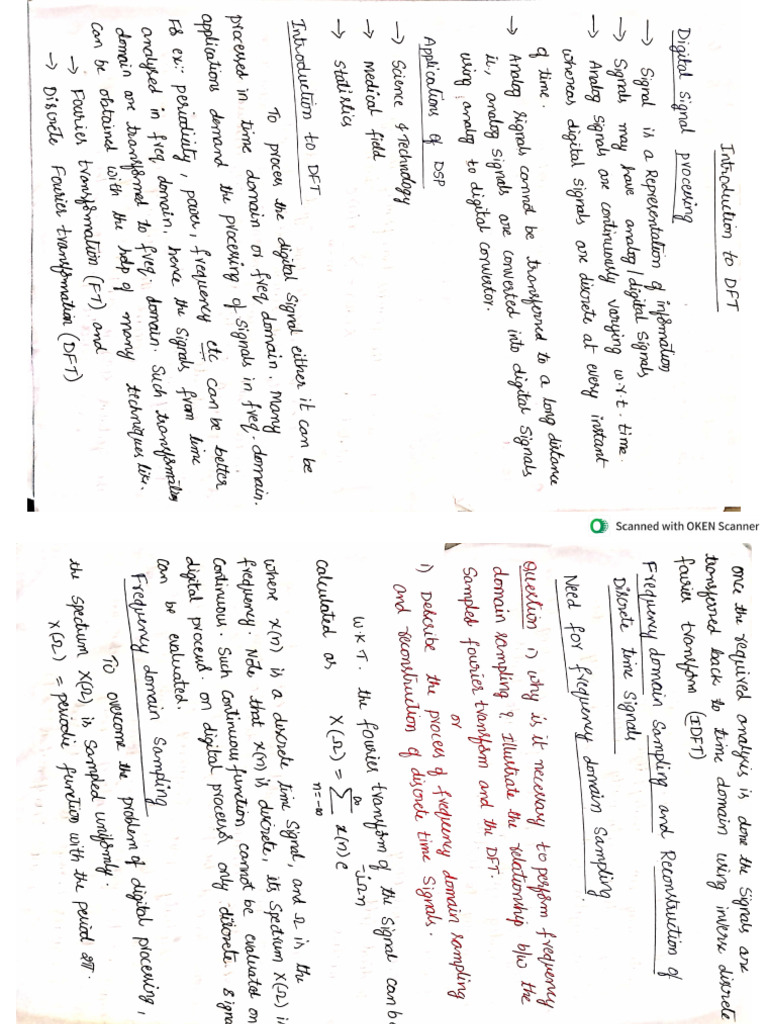 Introduction to DFT
Digital Signal processing
→ Signal is a Representation of information
→ Signals may have analog/digital signals
→ Analog signals are continuously varying w.r.t. time.
whereas digital signals are discrete at every instant
of time.
→ Analog signals cannot be transferred to a long distance
ie, analog signals are converted into digital signals
using analog to digital convertor.
Applications of DSP
→ Science & technology
→ Medical field
→ Statistics
Introduction to DFT
To process the digital signal either it can be
processed in time domain or freq domain. Many
applications demand the processing of signals in freq. domain.
For ex:- periodicity, power, frequency etc can be better
analysed in freq domain. hence the signals from time
domain are transformed to freq. domain. Such transformation
can be obtained with the help of many techniques like.
→ Fourier transformation (FT) and
→ Discrete Fourier transformation (DFT)
Scanned with OKEN Scanner
once the required analysis is done the signals are
transferred back to time domain using inverse discrete
fourier transform (IDFT)
Frequency domain Sampling and Reconstruction of
Discrete time Signals
Need for frequency domain Sampling
Question 1) why is it necessary to perform frequency
domain sampling & Illustrate the relationship b/w the
Sampled fourier transform and the DFT.
or
1) Describe the process of frequency domain sampling
and reconstruction of discrete time Signals.
W.K.T. the fourier transform of the signal can be
calculated as X(Ω) = ∑_{n=-∞}^{∞} x(n) e^{-jΩn}
where x(n) is a discrete time signal, and Ω is the
frequency. Note that x(n) is discrete, its spectrum X(Ω) i
Continuous. Such continuous function cannot be evaluated on
digital processor. on digital processor only discrete signa
can be evaluated.
Frequency domain Sampling
To overcome the problem of digital processing,
the spectrum X(Ω) is sampled uniformly.
X(Ω) = periodic function with the period 2π.